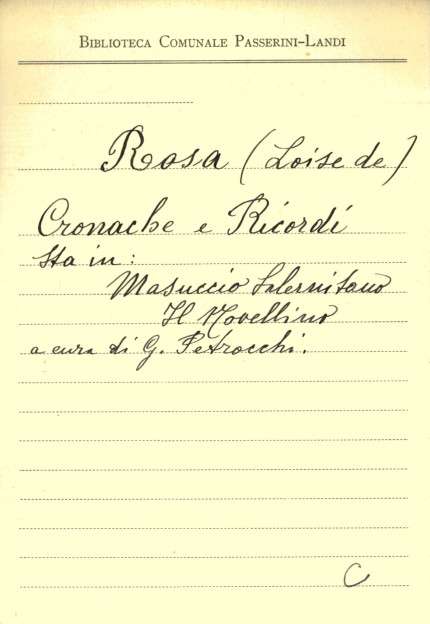 BIBLIOTECA COMUNALE PASSERINI-LANDI
Rosa (Loise de)
Cronache e Ricordi
Sta in:
Masuccio Salernitano
Il Novellino
a cura di G. Petrocchi.
C